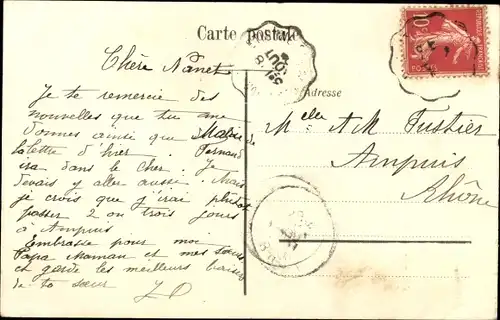 Carte postale
Adresse
Chère Nanet
Je te remercie des
nouvelles que tu me
donnes ainsi que
la lettre d'hier. Fernand
ira dans le Cher. Je
devais y aller aussi. Mais
je crois que j'irai plutot
passer 2 ou trois jours
à Ampuis
Embrasse pour moi
Papa Maman et mes sœurs
et garde les meilleurs baisers
de ta sœur
Melle A M Fustier
Ampuis
Rhône
10